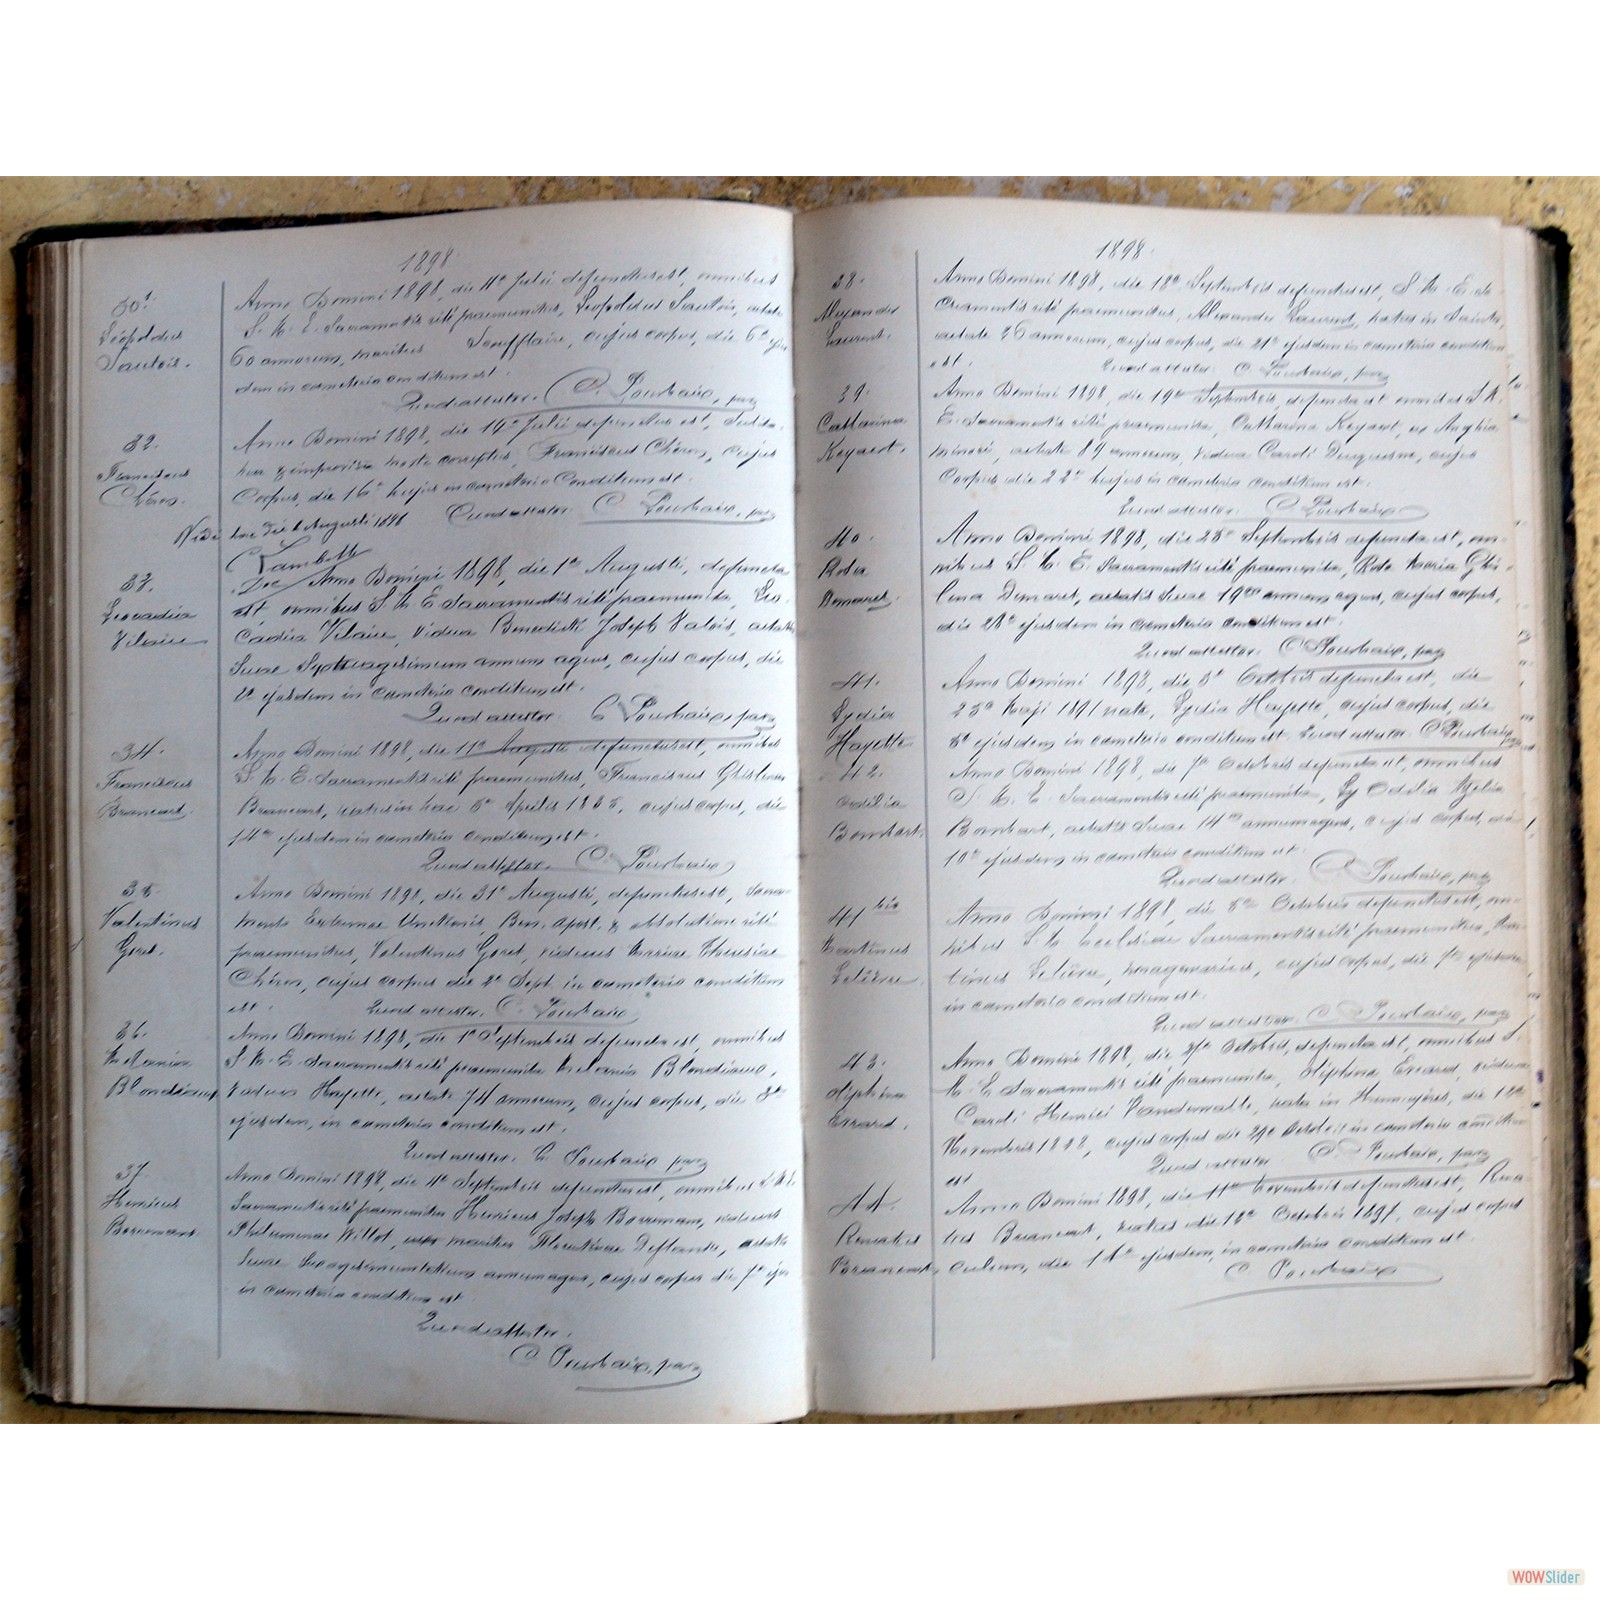 1898
30!
Leopoldus
Sautois.
Anno Domini 1898, die 4a Julii defunctus est, omnibus
S. M. E. Sacramentis rité praemunitus, Leopoldus Sautois, aetate
60 annorum, maritus Soufflaire, cujus corpus, die 6a ejus
dem in cameterio conditum est.
Quod attestor. C. Pourbaix, par
32.
Franciscus
Chéron.
Anno Domini 1898, die 14a Julii defunctus est,
hac improvisa morte correptus, Franciscus Chéron, cujus
Corpus, die 16a hujus in cameterio Conditum est.
Quod attestor. C. Pourbaix, par
Vidi hac die 1 Augusti 1898
Lambott
Doc
33.
Leocadia
Vilaire
Anno Domini 1898, die 1a Augusti, defuncta
est, omnibus S. M. E. Sacramentis rité praemunita, Leo
Cadia Vilaire, vidua Benedicti Joseph Valois, aetatis
Suae Septuagesimum annum agens, cujus corpus, die
ejusdem in cameterio conditum est.
Quod attestor. C. Pourbaix, par
34.
Franciscus
Brancart.
Anno Domini 1898, die 11a Augusti defunctus est, omnibus
S. M. E. Sacramentis rité praemunitus, Franciscus Ghislenus
Brancart, natus in hac 5a Aprilis 1835, cujus corpus, die
14a ejusdem in cameterio conditum est.
Quod attestor. C. Pourbaix
35.
Valentinus
Goret.
Anno Domini 1898, die 31a Augusti, defunctus est, Sacra
mento Extremae Unctionis, Ben. Apost. & absolutione rité
praemunitus, Valentinus Goret, viduus Mariae Theresiae
Chéron, cujus corpus die 2a Sept. in cameterio conditum
est. Quod attestor. C. Pourbaix
36.
Melania
Blondiaux
Anno Domini 1898, die 1a Septembris defuncta est, omnibus
S. M. E. Sacramentis rité praemunita Melania Blondiaux,
vidua Hayette, aetate 74 annorum, cujus corpus, die 3a
ejusdem, in cameterio conditum est.
Quod attestor. C. Pourbaix par
37
Henricus
Borremans.
Anno Domini 1898, die 4a Septembris defunctus est, omnibus S. M. E.
Sacramentis rité praemunitus Henricus Joseph Borremans, viduus
Philumenae Willot, maritus Florentinae Deflandre, aetatis
Suae Sexagesimum annum agens, cujus corpus die 7a ejus
in cameterio conditum est.
Quod attestor.
C. Pourbaix, par
1898.
38.
Alexander
Laurent.
Anno Domini 1898, die 18a Septembris defunctus est, S. M. E. Sa
cramentis rité praemunitus, Alexander Laurent, natus in Saintes,
aetate 26 annorum, cujus corpus, die 21a ejusdem in cameterio conditum
est. Quod attestor. C. Pourbaix, par
39.
Catharina
Keyaert.
Anno Domini 1898, die 19a Septembris, defuncta est omnibus S. M.
E. Sacramentis rité praemunita, Catharina Keyaert, ex Anghia
minori, aetate 89 annorum, vidua Caroli Duquesne, cujus
Corpus die 22a hujus in cameterio conditum est.
Quod attestor. C. Pourbaix
40.
Rosa
Demaret.
Anno Domini 1898, die 25a Septembris defuncta est, om
nibus S. M. E. Sacramentis rité praemunita, Rosa Maria Ghi
lena Demaret, aetatis Suae 19um annum agens, cujus corpus,
die 28a ejusdem in cameterio conditum est.
Quod attestor. C. Pourbaix, par
41.
Lydia
Hayette
Anno Domini 1898, die 5a Octobris defuncta est, die
25a Maji 1891 nata, Lydia Hayette, cujus corpus, die
8a ejusdem in cameterio conditum est. Quod attestor. C. Pourbaix
42.
Odilia
Bombart.
Anno Domini 1898, die 7a Octobris defuncta est, omnibus
S. M. E. Sacramentis rité praemunita, Odilia Azélia
Bombart, aetatis Suae 14um annum agens, cujus corpus, die
10a ejusdem in cameterio conditum est.
Quod attestor. C. Pourbaix, par
41 bis
Martinus
Lelièvre
Anno Domini 1898, die 5a Octobris defunctus est, om
nibus S. M. Ecclesiae Sacramentis rité praemunitus, Mar
tinus Lelièvre, cujus corpus, die 7a ejusdem
in cameterio conditum est.
Quod attestor. C. Pourbaix, par
43.
Alphina
Errard.
Anno Domini 1898, die 27a Octobris, defuncta est, omnibus S.
M. E. Sacramentis rité praemunita, Alphina Errard, vidua
Caroli Henrici Vandewalle, nata in Hennuyères, die 12a
Novembris 1848, cujus corpus die 29a Octobris in cameterio conditum
est Quod attestor C. Pourbaix, par
44.
Renatus
Briancart,
Anno Domini 1898, die 11a Novembris defunctus est, Rena
tus Briancart, natus die 12a Octobris 1897, cujus corpus
culum, die 14a ejusdem, in cameterio conditum est.
C. Pourbaix
WOWSlider